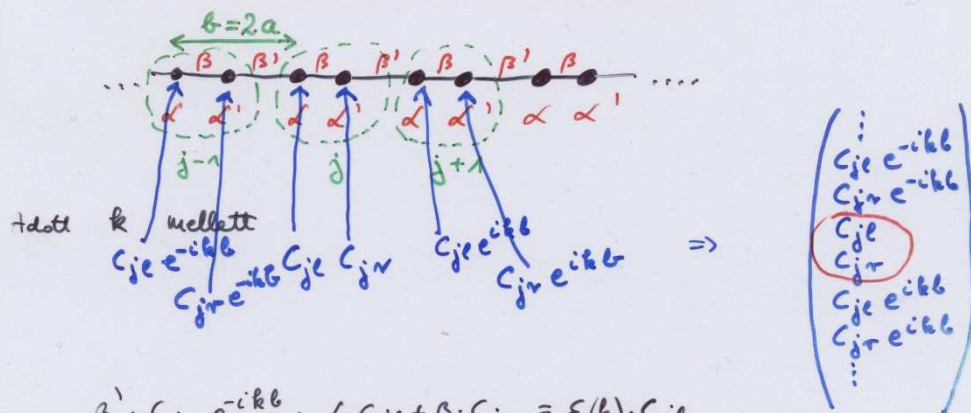 b = 2a
β β' β β' β β' β
..... .....
α α' α α' α α' α α'
j-1 j j+1
Adott k mellett
C_{jl} e^{-ikb} C_{jr} e^{-ikb} C_{jl} C_{jr} C_{jl} e^{ikb} C_{jr} e^{ikb}
⇒
⋮
C_{jl} e^{-ikb}
C_{jr} e^{-ikb}
C_{jl}
C_{jr}
C_{jl} e^{ikb}
C_{jr} e^{ikb}
⋮